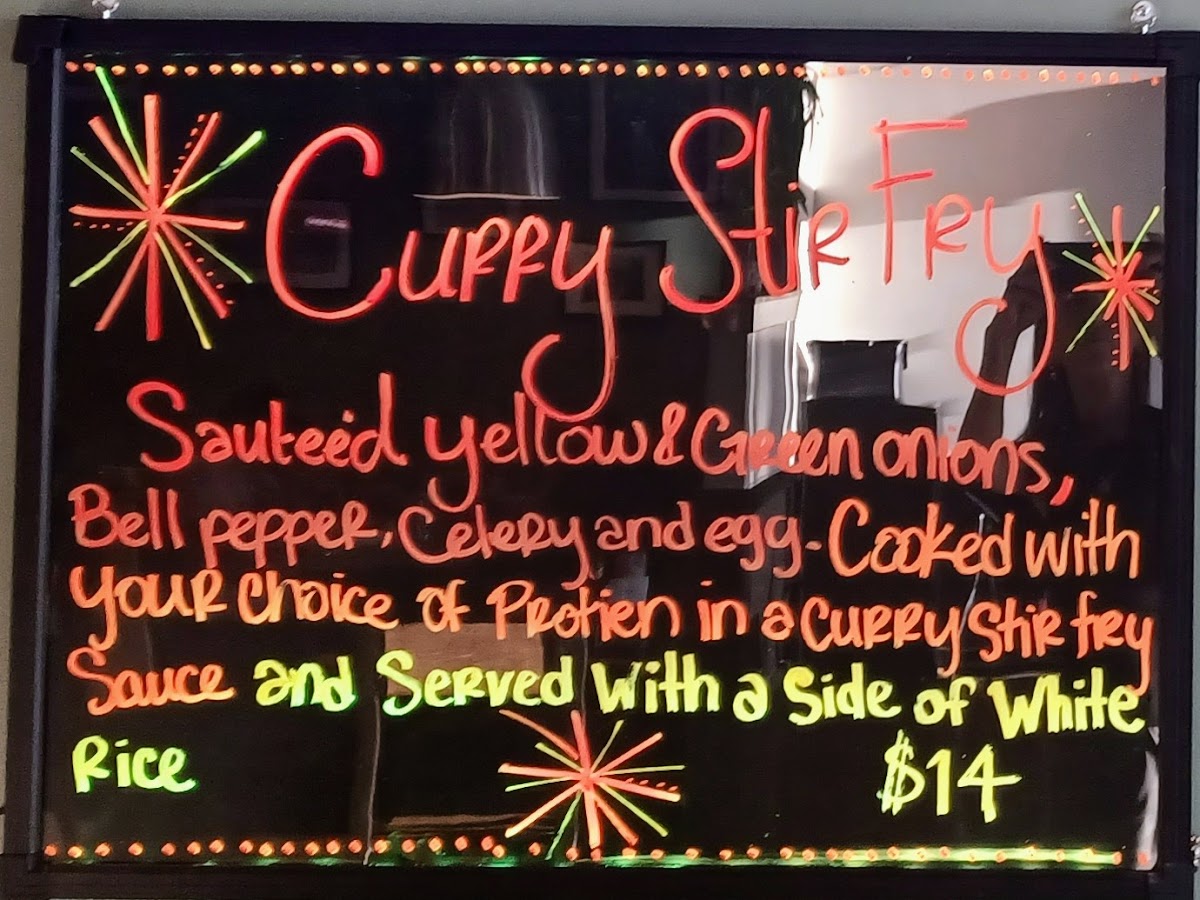 Curry Stir Fry
Sauteéd yellow & Green onions,
Bell pepper, Celery and egg. Cooked with
your choice of Protien in a curry Stir fry
Sauce and Served With a Side of White
Rice $14